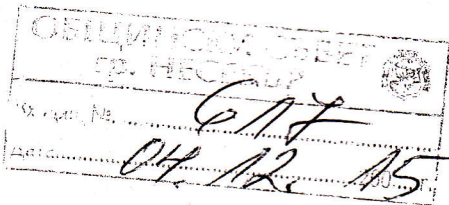 ОБЩИНСКИ СЪВЕТ
гр. НЕСЕБЪР
№ 617
Дата 04. 12. 15 200 г.